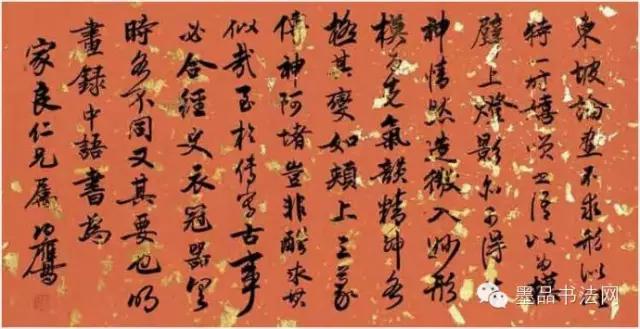 東坡論畫不求形似
特一时嬉笑之以為
壁上燈影尔可得
神情然造微入妙形
模為先氣韻精神各
極其變如頰上三毫
傳神阿堵豈非酷求其
似哉至於傳寫古事
必合經史衣冠器具
時各不同又其要也明
畫録中語書為
家良仁兄屬
墨品书法网